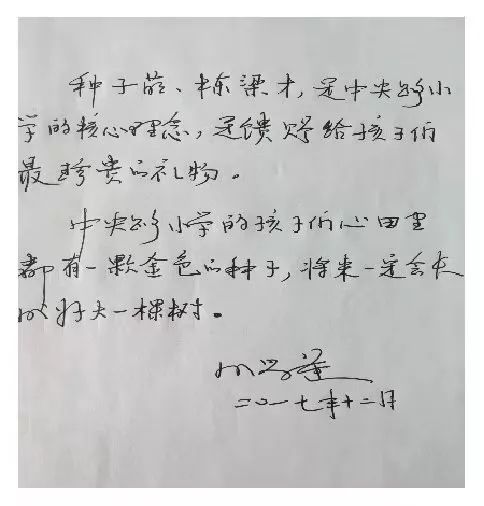 种子萌、栋梁才，是中央路小
学的核心理念，是馈赠给孩子们
最珍贵的礼物。
中央路小学的孩子们心田里
都有一颗金色的种子，将来一定会长
成好大一棵树。
成尚荣
二〇一七年十二月